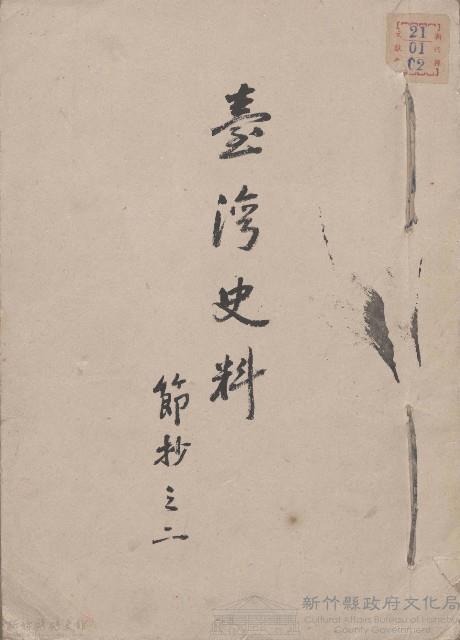 臺灣史料
節抄之二
21
01
02
新竹縣政府文化局
Cultural Affairs Bureau of Hsinchu
County Government